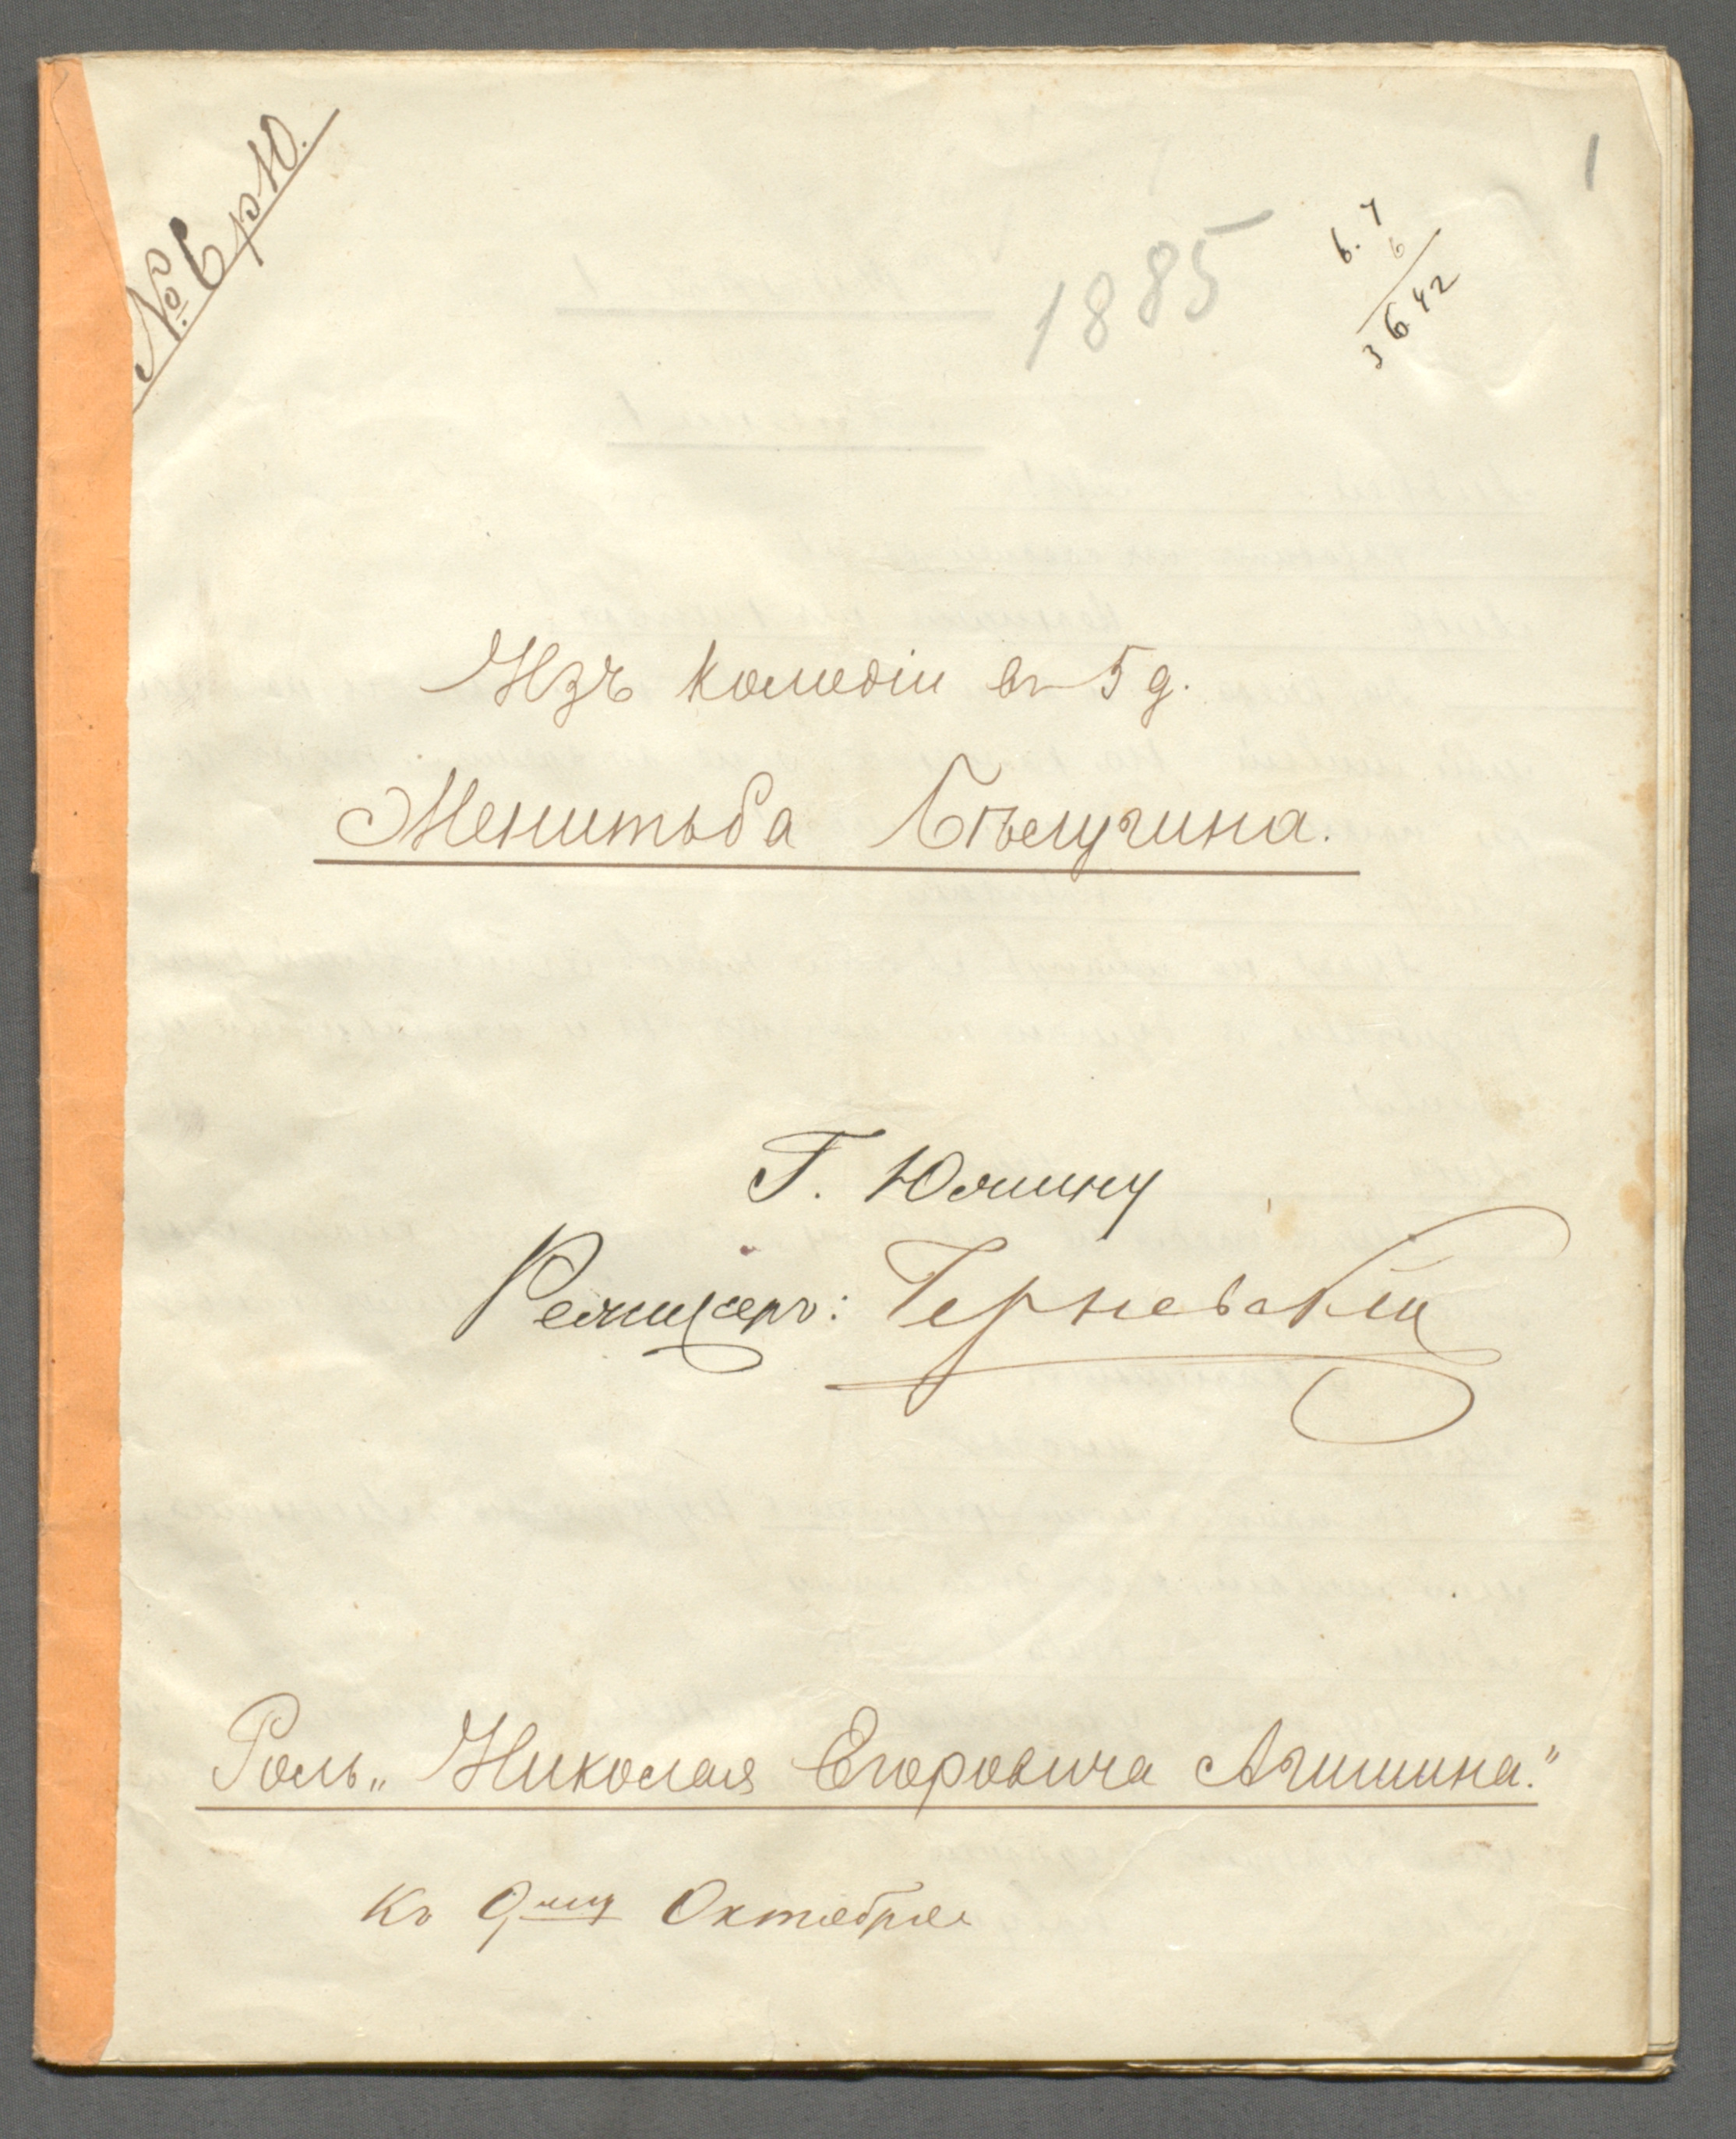 № 6 р Ю.
1
1885
6. 7
6
3642
Изъ комедіи въ 5 д.
Женитьба Бѣлугина.
Г. Южину
Режиссеръ: Черневскій
Роль „Николая Егоровича Агишина."
Къ 9му Октября